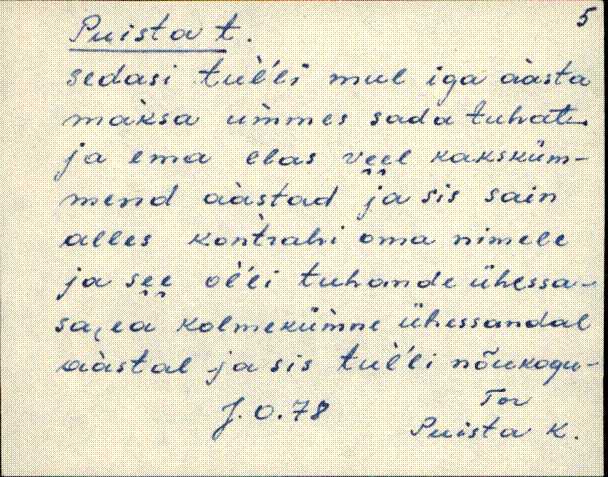 5
Puista t.
sedasi tuĺĺi mul iga àasta
màksa ùmmes sada tuhat
ja ema elas veel kaksküm-
mend aàstad ja sis sain
alles kòntrahi oma nimele
ja see oĺĺi tuhande ühessa-
sa,ea kolmekümne ühessandal
aàstal ja sis tuĺĺi nõukogu-
J.O.78
Tor
Puista K.